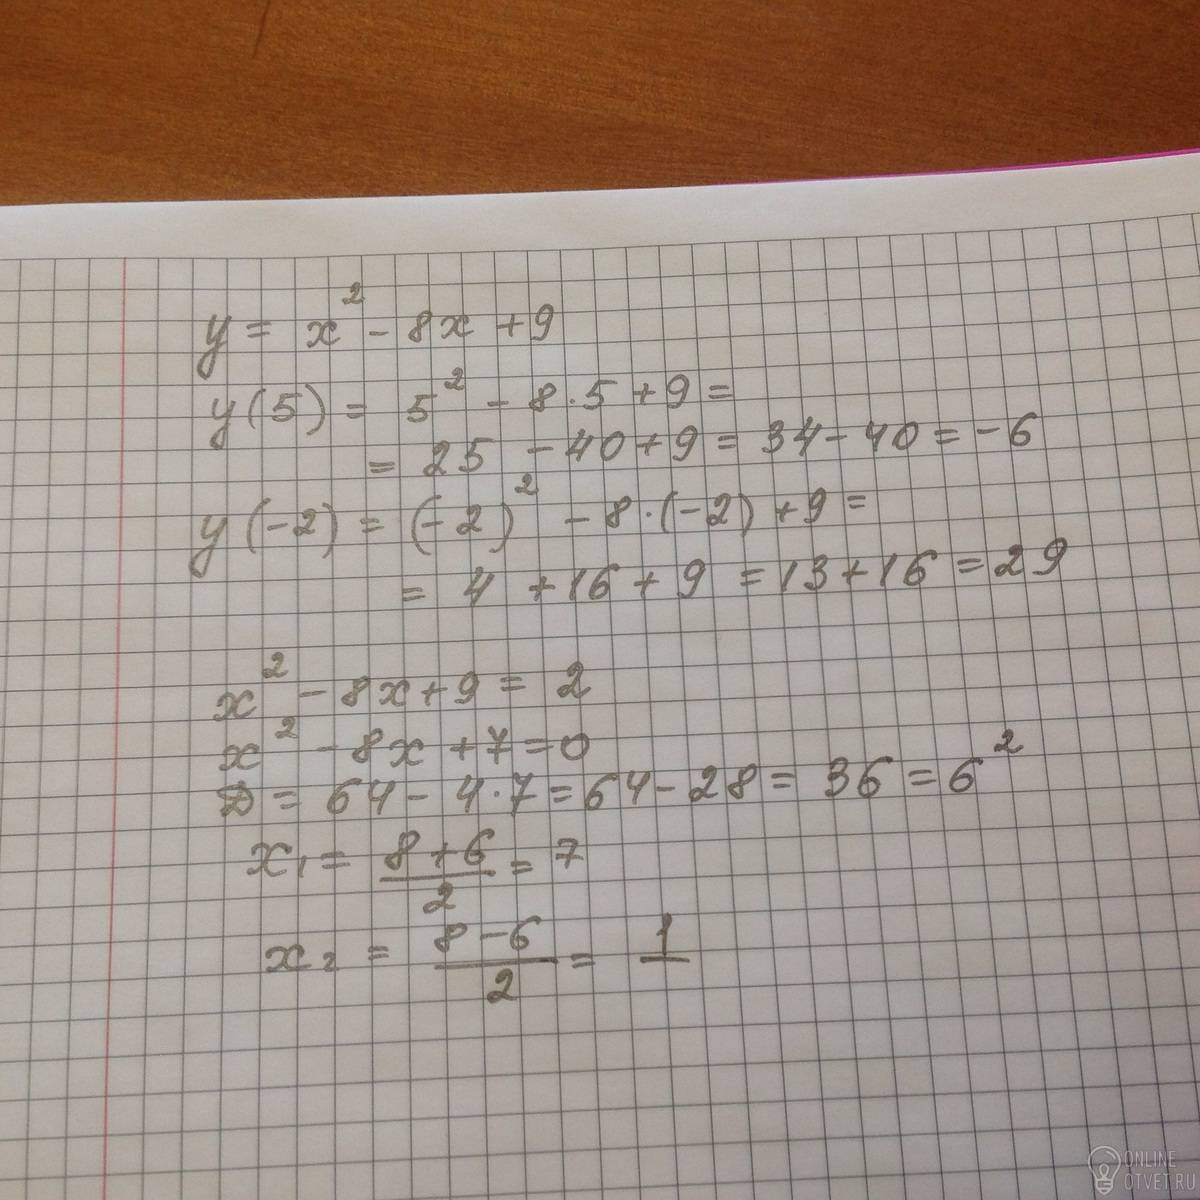 y = x² - 8x + 9
y(5) = 5² - 8·5 + 9 =
= 25 - 40 + 9 = 34 - 40 = -6
y(-2) = (-2)² - 8·(-2) + 9 =
= 4 + 16 + 9 = 13 + 16 = 29
x² - 8x + 9 = 2
x² - 8x + 7 = 0
D = 64 - 4·7 = 64 - 28 = 36 = 6²
x₁ = (8 + 6)/2 = 7
x₂ = (8 - 6)/2 = 1
ONLINE
OTVET.RU